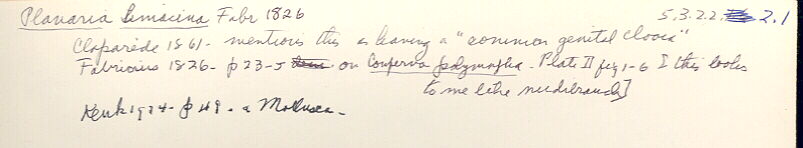 Planaria limacina Fabr 1826 5.3.2.2. 2.1
Claparède 1861 - mentions this as having a "common genital cloaca"
Fabricius 1826 - p 23-5 on Conferva polymorpha - Plate II fig 1-6 [this looks
to me like nudibranch]
Kenk 1974 - p 49 - a Mollusca -